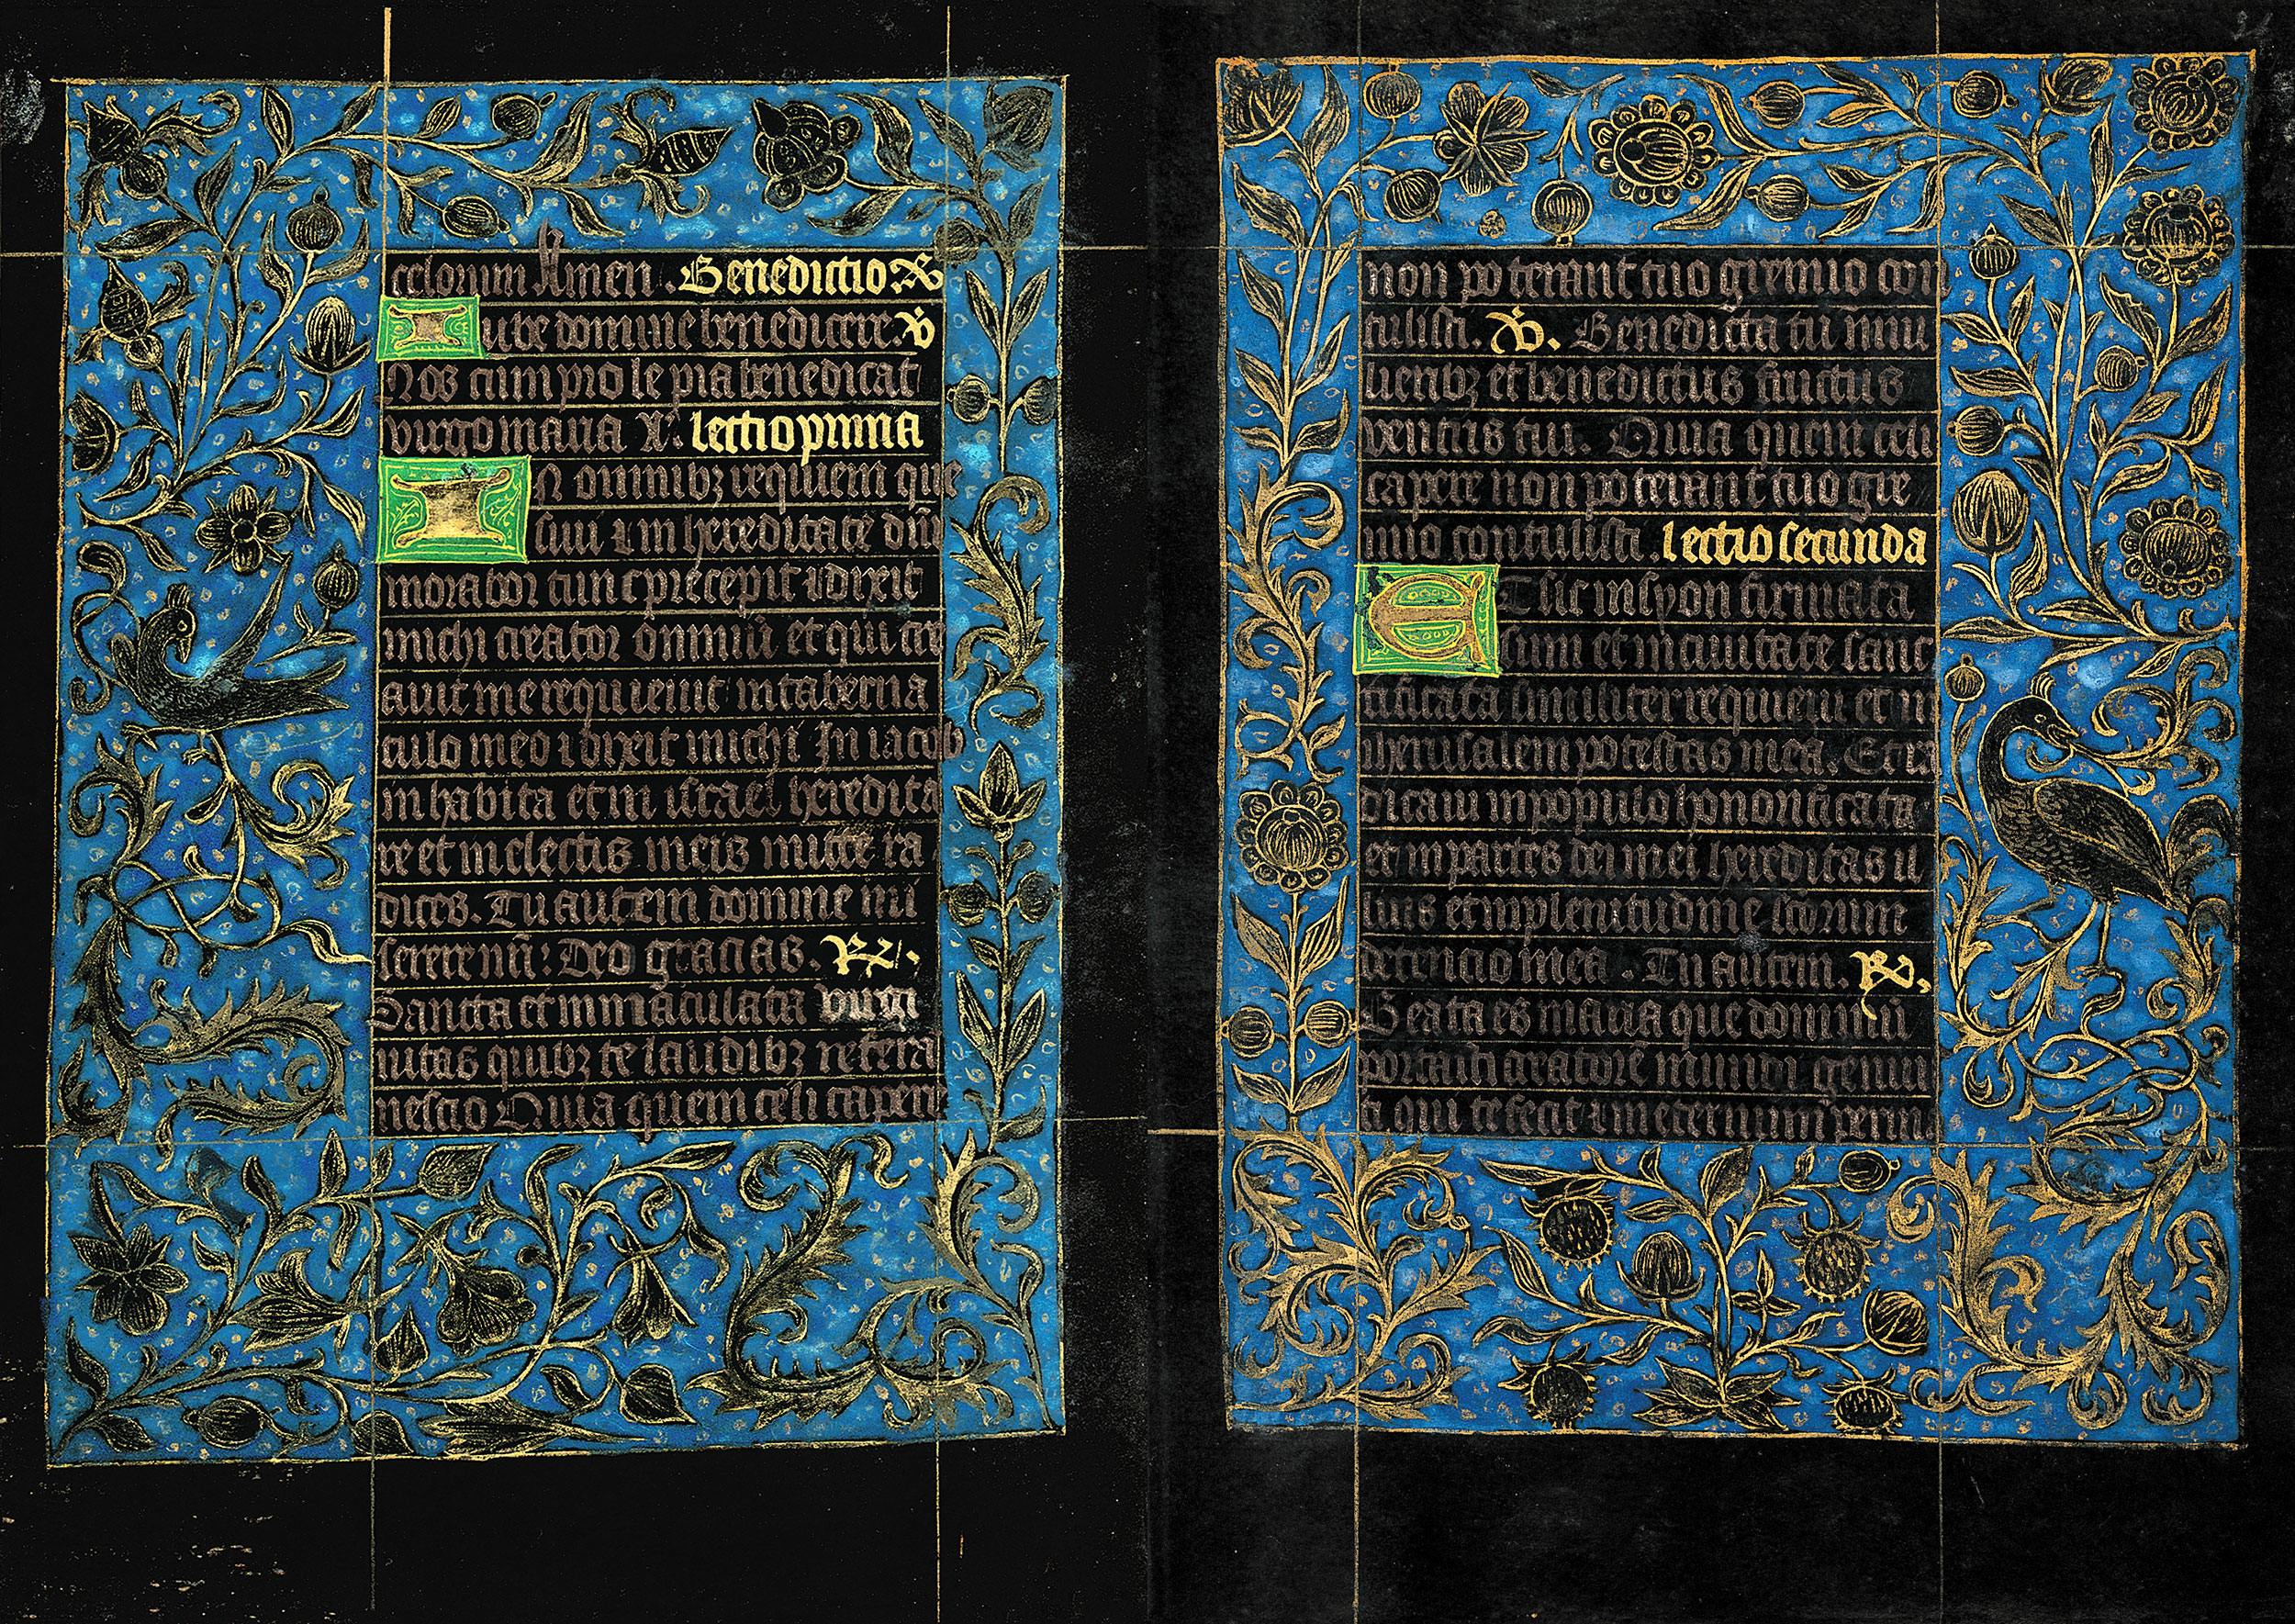 celorum Amen. Benedictio. R
Iube domine benedicere. V
Nos cum prole pia benedicat
virgo maria R. lectio prima
IN omnibz requiem que
sivi ⁊ in hereditate dñi
morabor tunc precepit ⁊ dixit
michi creator omniũ et qui cre
avit me requievit in taberna
culo meo ⁊ dixit michi In iacob
in habita et in israel heredita
re et in electis meis mitte ra
dices. Tu autem domine mi
serere nr̃i: Deo gracias. R.
Sancta et inmaculata virgi
nitas quibz te laudibz refera
nescio Quia quem celi capere
non poterant tuo gremio con
tulisti. V. Benedicta tu ĩ mu
lieribz et benedictus fructus
ventris tui. Quia quem celi
capere non poterant tuo gre
mio contulisti. lectio secunda
ET sic in syon firmata
sum et in civitate sanc
tificata similiter requievi et in
iherusalem potestas mea. Et ra
dicavi in populo honorificata
et in partes dei mei hereditas il
lius et in plenitudine sc̃orum
detencio mea. Tu autem. R.
Beata es maria que dominũ
portasti creatorẽ mundi genui
ti qui te fecit ⁊ in eternum perma